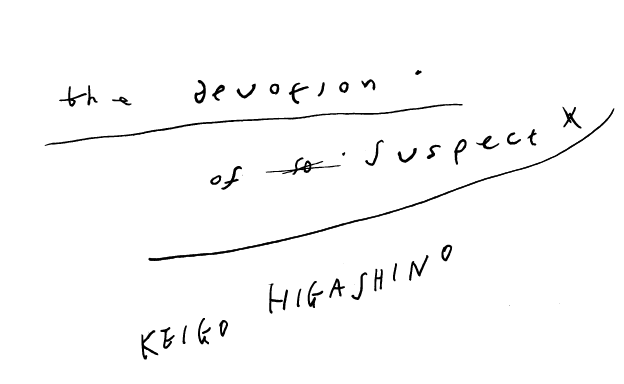 the devotion
of so suspect X
KEIGO HIGASHINO